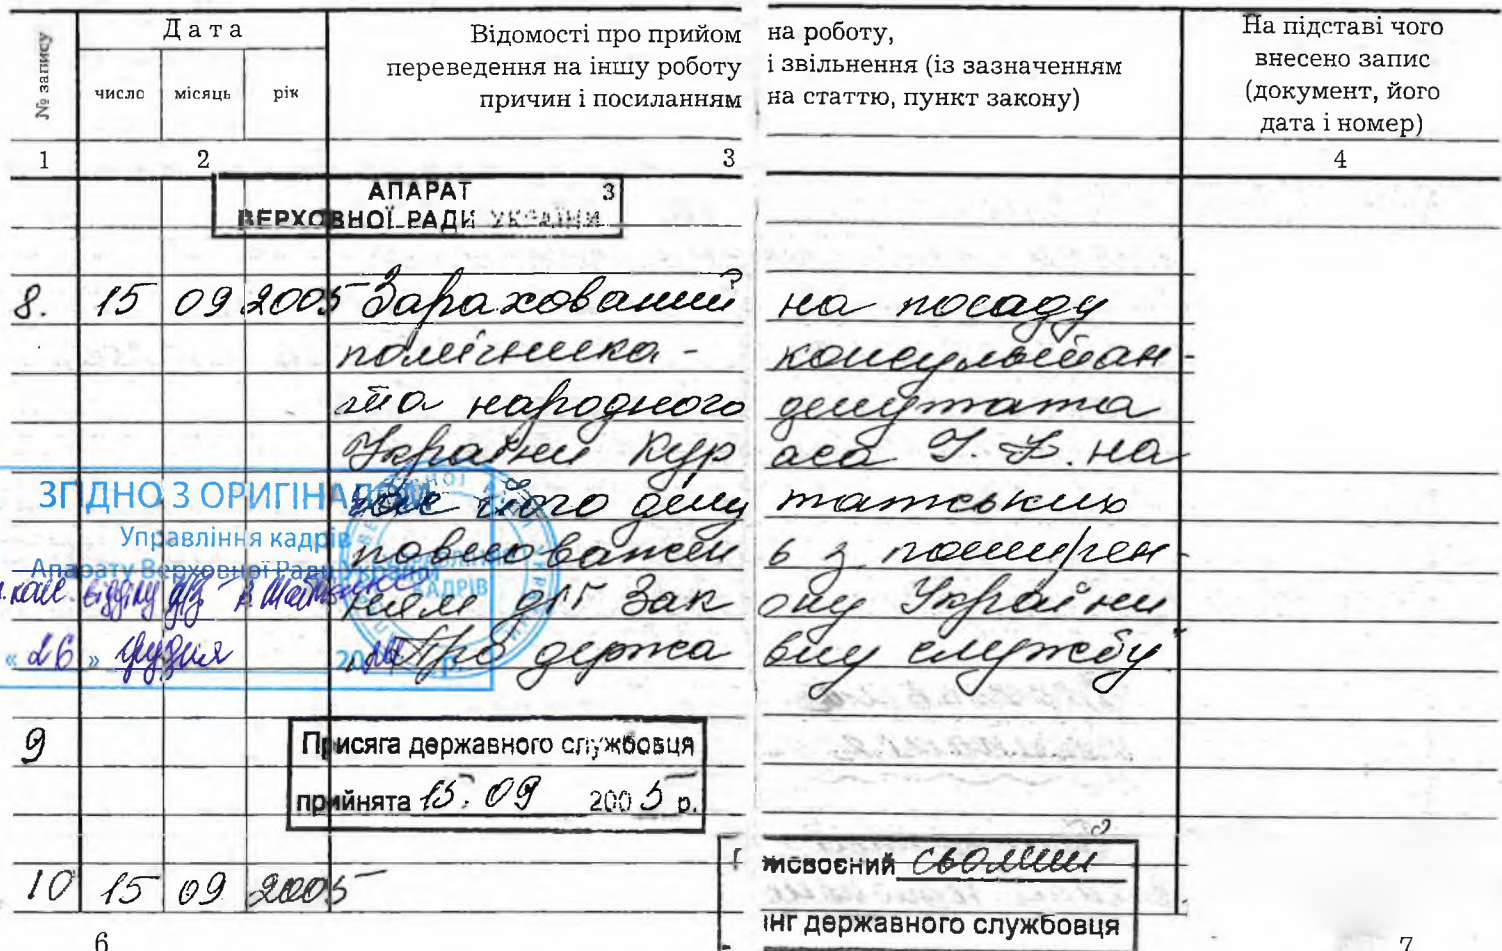 № запису
Дата
число місяць рік
Відомості про прийом на роботу,
переведення на іншу роботу і звільнення (із зазначенням
причин і посиланням на статтю, пункт закону)
На підставі чого
внесено запис
(документ, його
дата і номер)
1 2 3 4
АПАРАТ 3
ВЕРХОВНОЇ РАДИ УКРАЇНИ
8. 15 09 2005 Зарахований на посаду
помічника- консультан-
та народного депутата
України Кур аса І. Ф. на
час його депу татських
повноважен ь з поширен-
ням дії Зак ону України
„Про держа вну службу"
ЗГІДНО З ОРИГІНАЛОМ
Управління кадрів
Апарату Верховної Ради України
відділу
КАДРІВ
« 26 » грудня 20 р.
9
Присяга державного службовця
прийнята 15. 09 2005 р.
10 15 09 2005
Присвоєний сьомий
нг державного службовця
6 7